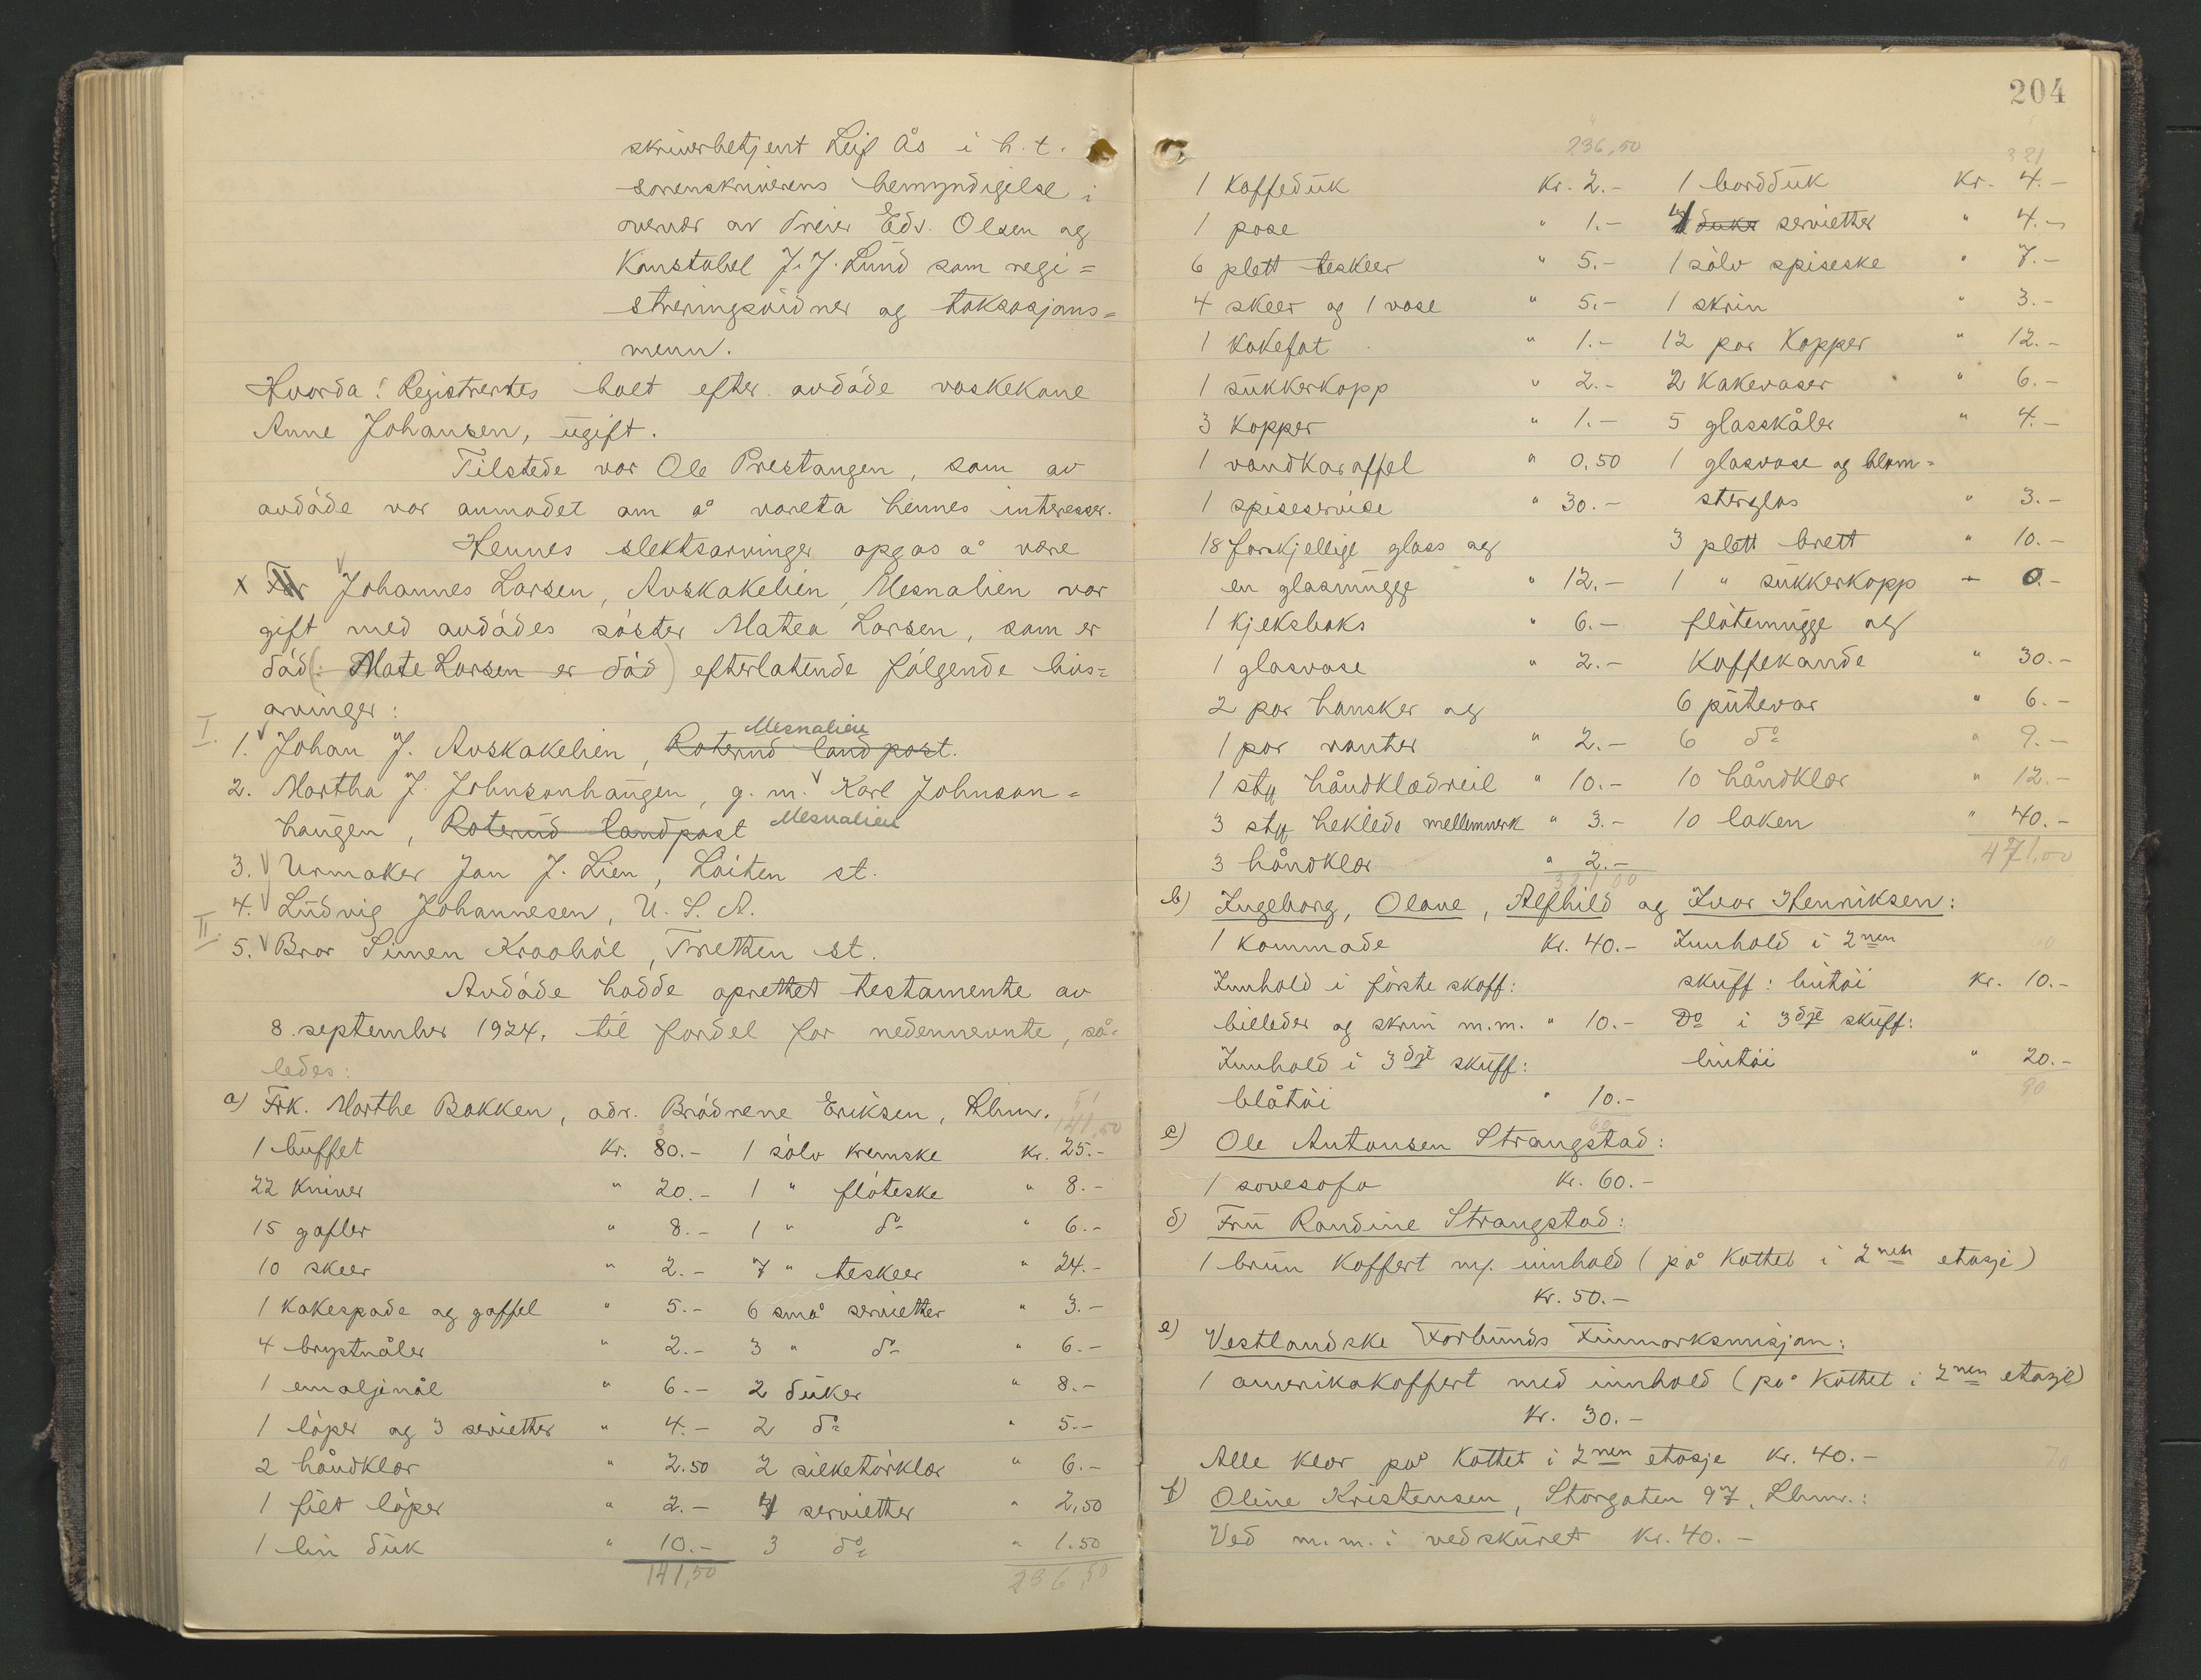 skriverbetjent Leif Ås i h.t.
sorenskriverens bemyndigelse i
nerver av dreier Edv. Olsen og
Konstabel J. J. Lund som regi=
streringsvidner og taksasjons=
menn.
Hvorda: Registrertes boet efter avdöde vaskekone
Anne Johansen, ugift.
Tilstede var Ole Prestangen, som av
avdöde var anmodet om å vareta hennes interesser.
Hennes slektsarvinger opgas å være
x Johannes Larsen, Avskakelien, Mesnalien var
gift med avdödes söster Matea Larsen, som er
död (: Mate Larsen er död) efterlatende fölgende livs=
arvinger:
I. 1. Johan J. Avskakelien, Roterud landpost. Mesnalien
2. Martha J. Johnsonhaugen, g. m. Karl Johnson=
haugen, Roterud landpost Mesnalien
3. Urmaker Jon J. Lien, Löiten st.
4. Ludvig Johannesen, U. S. A.
II. 5. Bror Simen Kraabøl, Tretten st.
Avdöde hadde oprettet testamente av
8. september 1924. til fordel for nedennevnte, så=
ledes:
a) Frk. Marthe Bakken, adr. Brödrene Eriksen, Lhmr. 141,50
1 buffet Kr. 80.- 1 sölv kremske Kr. 25.-
22 Kniver " 20.- 1 " flöteske " 8.-
15 gafler " 8.- 1 " do " 6.-
10 skeer " 2.- 7 " teskeer " 24.-
1 Kakespade og gaffel " 5.- 6 små servietter " 3.-
4 brystnåler " 2.- 3 " do " 6.-
1 emaljenål " 6.- 2 duker " 8.-
1 löper og 3 servietter " 4.- 2 do " 5.-
2 håndklær " 2.50 2 silketörklær " 6.-
1 filet löper " 2.- 4 servietter " 2,50
1 lin duk " 10.- 3 do " 1.50
141,50 236,50
204
236,50 321
1 Kaffeduk Kr. 2.- 1 bordduk Kr. 4.-
1 pose " 1.- 4 duke servietter " 4.-
6 plett teskeer " 5.- 1 sölv spiseske " 7.-
4 skeer og 1 vase " 5.- 1 skrin " 3.-
1 Kakefat " 1.- 12 par Kopper " 12.-
1 sukkerkopp " 2.- 2 Kakevaser " 6.-
3 Kopper " 1.- 5 glasskåler " 4.-
1 vandkaraffel " 0,50 1 glasvase og blom=
1 spiseservise " 30.- sterglas " 3.-
18 forskjellige glass og 3 plett brett " 10.-
en glasmugge " 12.- 1 " sukkerkopp - 0.-
1 Kjeksboks " 6.- flötemugge og
1 glasvase " 2.- Kaffekande " 30.-
2 par hansker og 6 putevar " 6.-
1 par vanter " 2.- 6 do " 9.-
1 stk håndklædreil " 10.- 10 håndklær " 12.-
3 stk heklede mellemverk " 3.- 10 laken " 40.-
3 håndklær " 2.- 471,00
321,00
b) Ingeborg, Olave, Alfhild og Ivar Henriksen:
1 kommode Kr. 40.- Innhold i 2nen
Innhold i förste skoff: skuff: lintöi Kr. 10.-
billeder og skrin m.m. " 10.- Do i 3dje skuff:
Innhold i 3dje skuff: lintöi " 20.-
blåtöi " 10.- 90
60
c) Ole Antonsen Strangstad:
1 sovesofa Kr. 60.-
d) Fru Randine Strangstad:
1 brun Koffert m/. innhold (på Kottet i 2nen etasje)
Kr. 50.-
e) Vestlandske Forbunds Finmarksmisjon:
1 amerikakoffert med innhold (på Kottet i 2nen etasje)
Kr. 30.-
Alle klær på Kottet i 2nen etasje Kr. 40.- 70
f) Oline Kristensen, Storgaten 97, Lhmr.:
Ved m. m. i vedskuret Kr. 40.-